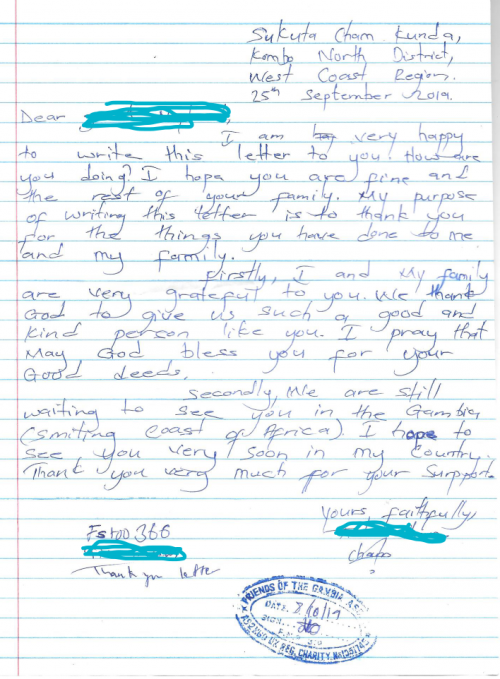 Sukuta Cham Kunda,
Kombo North District,
West Coast Region.
25th September 2019.
Dear
I am very happy
to write this letter to you. How are
you doing? I hope you are fine and
the rest of your family. My purpose
of writing this letter is to thank you
for the things you have done to me
and my family.
Firstly, I and My family
are very grateful to you. We thank
God to give us such a good and
kind person like you. I pray that
May God bless you for your
Good deeds.
Secondly, We are still
waiting to see you in the Gambia
(Smiling Coast of Africa). I hope to
see you very soon in my country.
Thank you very much for your Support.
Yours, faithfully,
366
Thank you letter
FRIENDS OF THE GAMBIA
DATE
REG. CHARITY